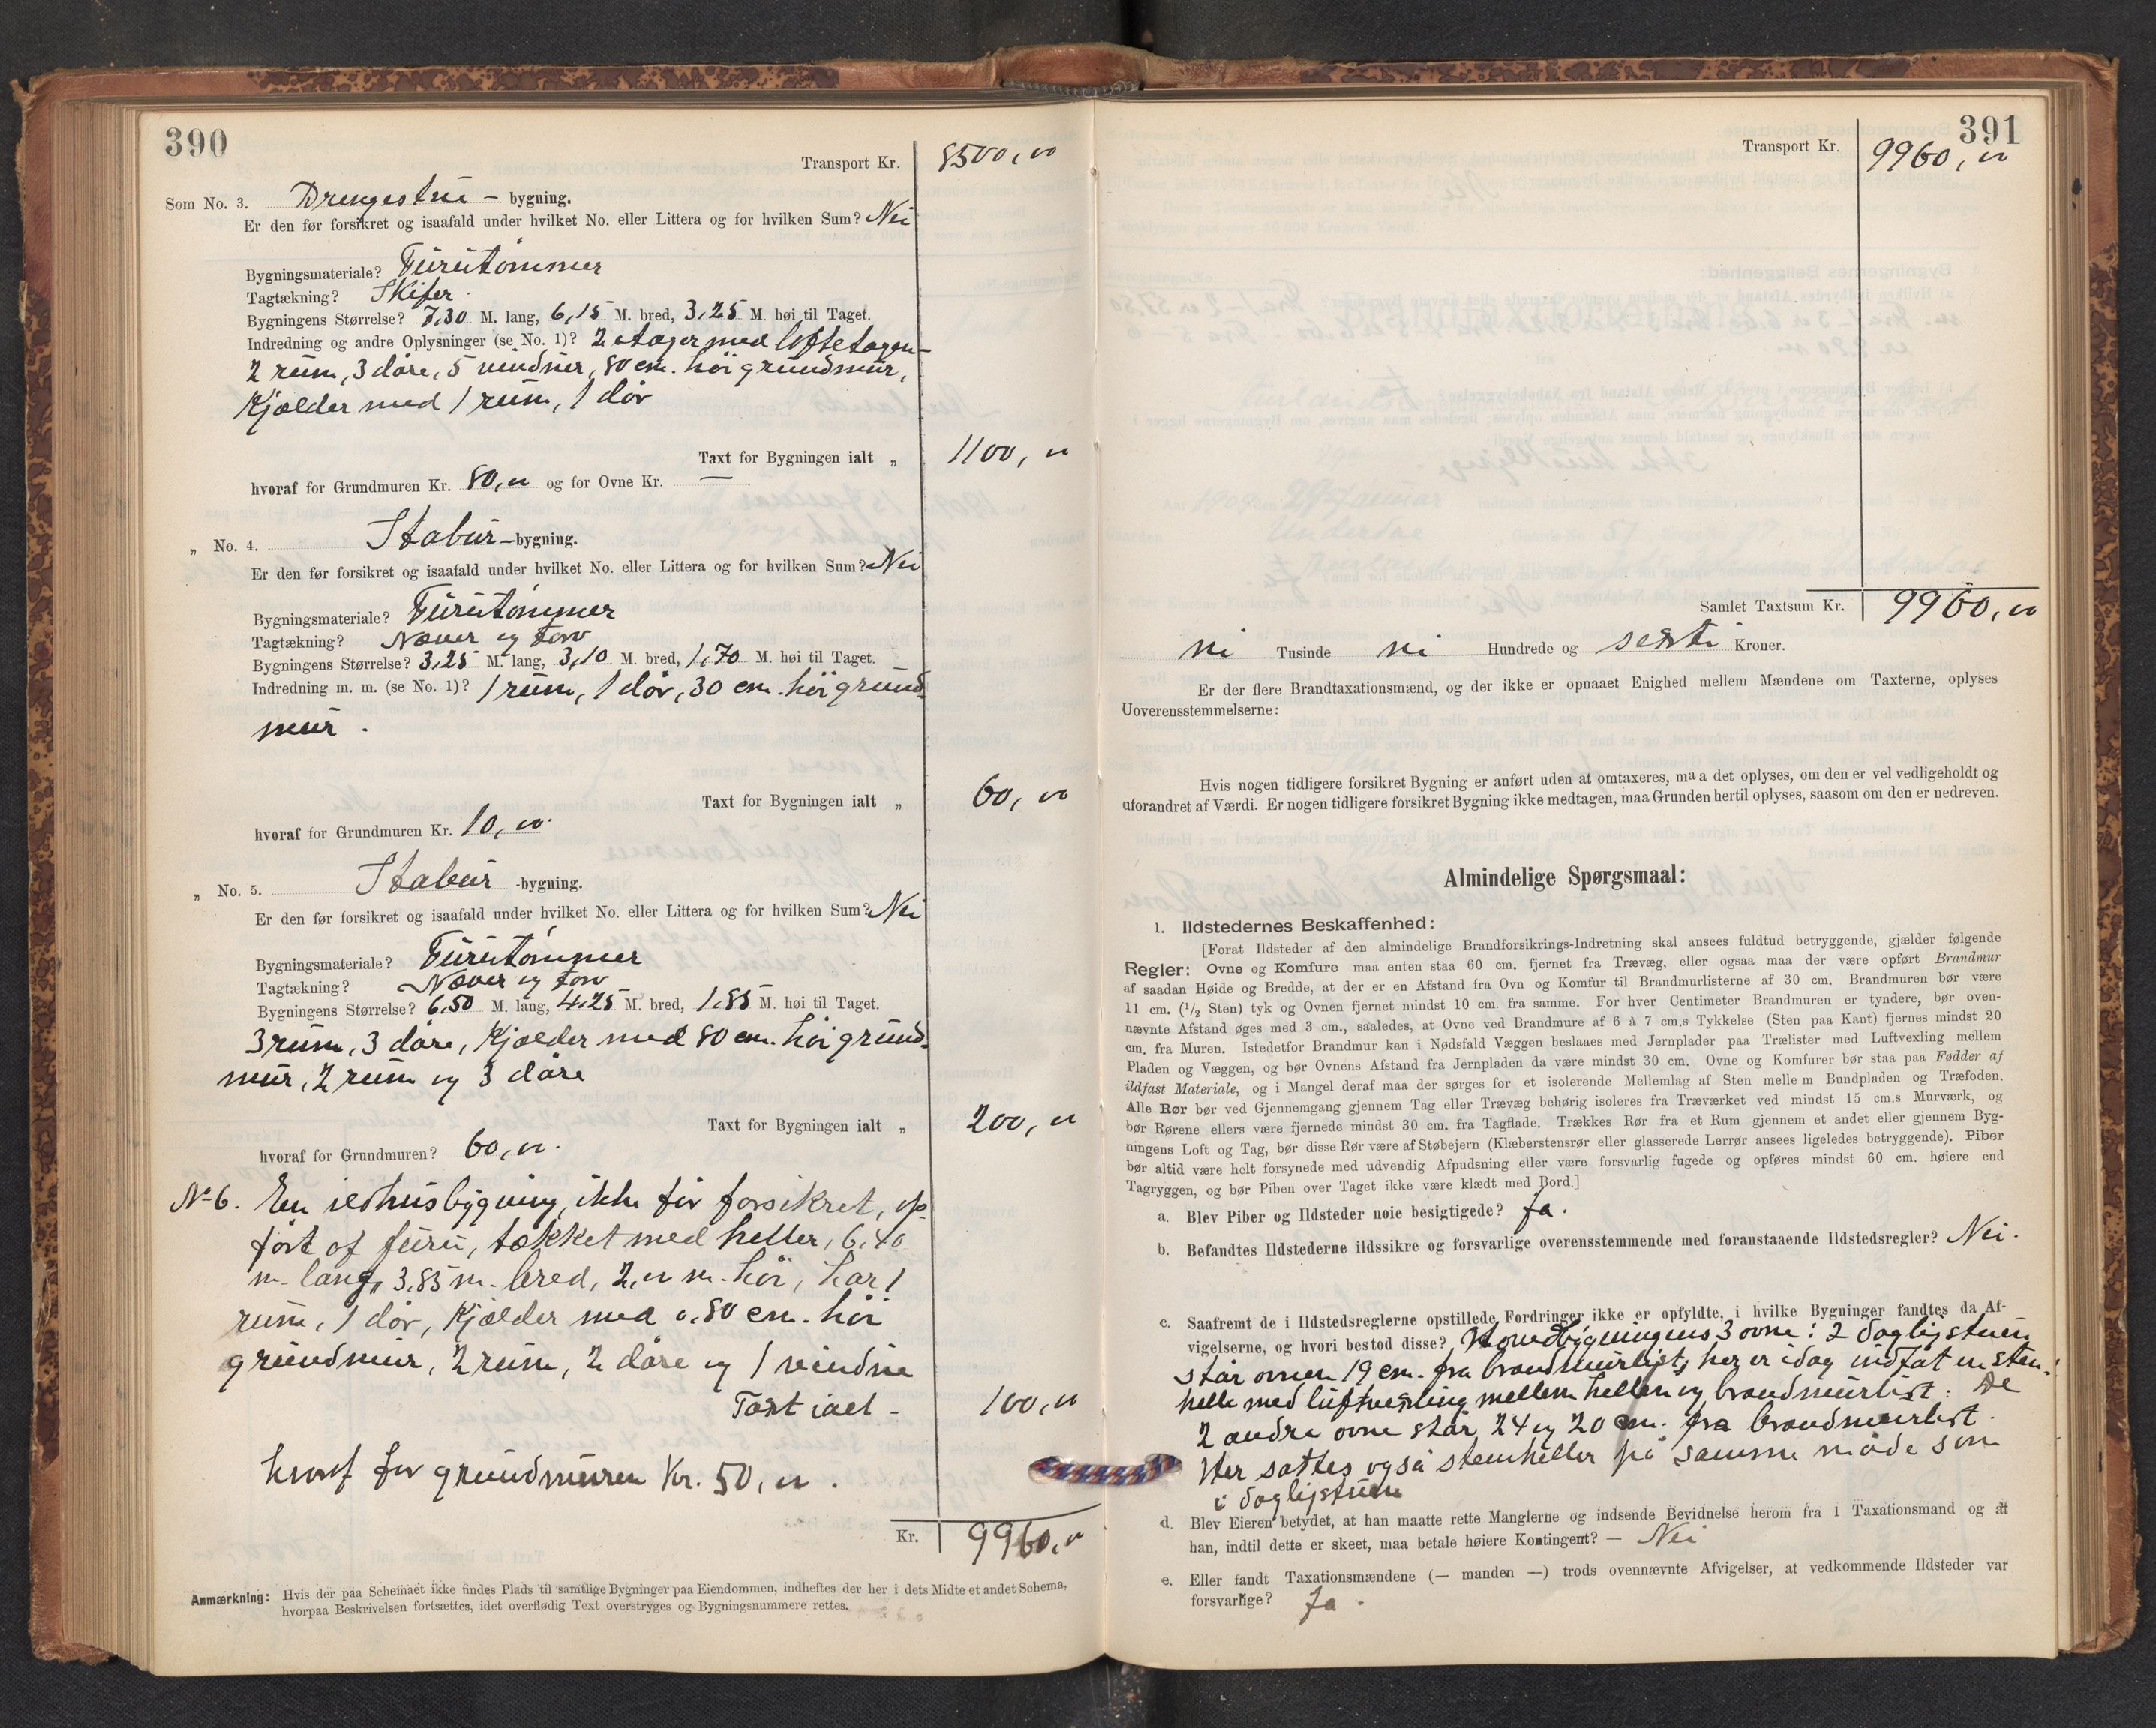 390
Transport Kr. 8500,00
Som No. 3. Drengestue - bygning.
Er den før forsikret og isaafald under hvilket No. eller Littera og for hvilken Sum? Nei
Bygningsmateriale? Furutømmer
Tagtækning? Skifer
Bygningens Størrelse? 7,30 M. lang, 6,15 M. bred, 3,25 M. høi til Taget.
Indredning og andre Oplysninger (se No. 1)? 2 etager med loftetagen –
2 rum, 3 døre, 5 vinduer, 80 cm. høi grundmur,
Kjælder med 1 rum, 1 dør
Taxt for Bygningen ialt „ 1100,00
hvoraf for Grundmuren Kr. 80,00 og for Ovne Kr. —
„ No. 4. Stabur - bygning.
Er den før forsikret og isaafald under hvilket No. eller Littera og for hvilken Sum? Nei
Bygningsmateriale? Furutømmer
Tagtækning? Næver og torv
Bygningens Størrelse? 3,25 M. lang, 3,10 M. bred, 1,70 M. høi til Taget.
Indredning m. m. (se No. 1)? 1 rum, 1 dør, 30 cm. høi grund
mur .
Taxt for Bygningen ialt „ 60,00
hvoraf for Grundmuren Kr. 10,00.
„ No. 5. Stabur -bygning.
Er den før forsikret og isaafald under hvilket No. eller Littera og for hvilken Sum? Nei
Bygningsmateriale? Furutømmer
Tagtækning? Næver og torv
Bygningens Størrelse? 6,50 M. lang, 4,25 M. bred, 1,85 M. høi til Taget.
3 rum, 3 døre, Kjælder med 80 cm. høi grund-
mur, 2 rum og 3 døre
Taxt for Bygningen ialt „ 200,00
hvoraf for Grundmuren? 60,00.
No 6. En ildhusbygning, ikke før forsikret, op-
ført af furu, tækket med heller, 6,40
m. lang, 3,85 m. bred, 2,00 m. høi, har 1
rum, 1 dør, Kjælder med 0,80 cm. høi
grundmur, 2 rum, 2 døre og 1 vindue
Taxt ialt - 100,00
hvoraf for grundmuren Kr. 50,00 .
Kr. 9960,00
Anmærkning: Hvis der paa Schemaet ikke findes Plads til samtlige Bygninger paa Eiendommen, indheftes der her i dets Midte et andet Schema,
hvorpaa Beskrivelsen fortsættes, idet overflødig Text overstryges og Bygningsnummere rettes.
391
Transport Kr. 9960,00
Samlet Taxtsum Kr. 9960,00
ni Tusinde ni Hundrede og sexti Kroner.
Er der flere Brandtaxationsmænd, og der ikke er opnaaet Enighed mellem Mændene om Taxterne, oplyses
Uoverensstemmelserne:
Hvis nogen tidligere forsikret Bygning er anført uden at omtaxeres, maa det oplyses, om den er vel vedligeholdt og
uforandret af Værdi. Er nogen tidligere forsikret Bygning ikke medtagen, maa Grunden hertil oplyses, saasom om den er nedreven.
Almindelige Spørgsmaal:
1. Ildstedernes Beskaffenhed:
[Forat Ildsteder af den almindelige Brandforsikrings-Indretning skal ansees fuldtud betryggende, gjælder følgende
Regler: Ovne og Komfure maa enten staa 60 cm. fjernet fra Trævæg, eller ogsaa maa der være opført Brandmur
af saadan Høide og Bredde, at der er en Afstand fra Ovn og Komfur til Brandmurlisterne af 30 cm. Brandmuren bør være
11 cm. (1/2 Sten) tyk og Ovnen fjernet mindst 10 cm. fra samme. For hver Centimeter Brandmuren er tyndere, bør oven-
nævnte Afstand øges med 3 cm., saaledes, at Ovne ved Brandmure af 6 à 7 cm.s Tykkelse (Sten paa Kant) fjernes mindst 20
cm. fra Muren. Istedetfor Brandmur kan i Nødsfald Væggen beslaaes med Jernplader paa Trælister med Luftvexling mellem
Pladen og Væggen, og bør Ovnens Afstand fra Jernpladen da være mindst 30 cm. Ovne og Komfurer bør staa paa Fødder af
ildfast Materiale, og i Mangel deraf maa der sørges for et isolerende Mellemlag af Sten mellem Bundpladen og Træfoden.
Alle Rør bør ved Gjennemgang gjennem Tag eller Trævæg behørig isoleres fra Træværket ved mindst 15 cm.s Murværk, og
bør Rørene ellers være fjernede mindst 30 cm. fra Tagflade. Trækkes Rør fra et Rum gjennem et andet eller gjennem Byg-
ningens Loft og Tag, bør disse Rør være af Støbejern (Klæberstensrør eller glasserede Lerrør ansees ligeledes betryggende). Piber
bør altid være helt forsynede med udvendig Afpudsning eller være forsvarlig fugede og opføres mindst 60 cm. høiere end
Tagryggen, og bør Piben over Taget ikke være klædt med Bord.]
a. Blev Piber og Ildsteder nøie besigtigede? Ja.
b. Befandtes Ildstederne ildssikre og forsvarlige overensstemmende med foranstaaende Ildstedsregler? Nei.
c. Saafremt de i Ildstedsreglerne opstillede Fordringer ikke er opfyldte, i hvilke Bygninger fandtes da Af-
vigelserne, og hvori bestod disse? Hovedbygningens 3 ovne: I dagligstuen
står ovnen 19 cm. fra brandmurlist, her er idag indsat en sten-
helle med luftvexling mellem hellen og brandmurlist. De
2 andre ovne står 24 og 20 cm. fra brandmurlist.
Her sættes også stenheller på samme måde som
i dagligstuen
d. Blev Eieren betydet, at han maatte rette Manglerne og indsende Bevidnelse herom fra 1 Taxationsmand og at
han, indtil dette er skeet, maa betale høiere Kontingent? — Nei
e. Eller fandt Taxationsmændene (— manden —) trods ovennævnte Afvigelser, at vedkommende Ildsteder var
forsvarlige? Ja .